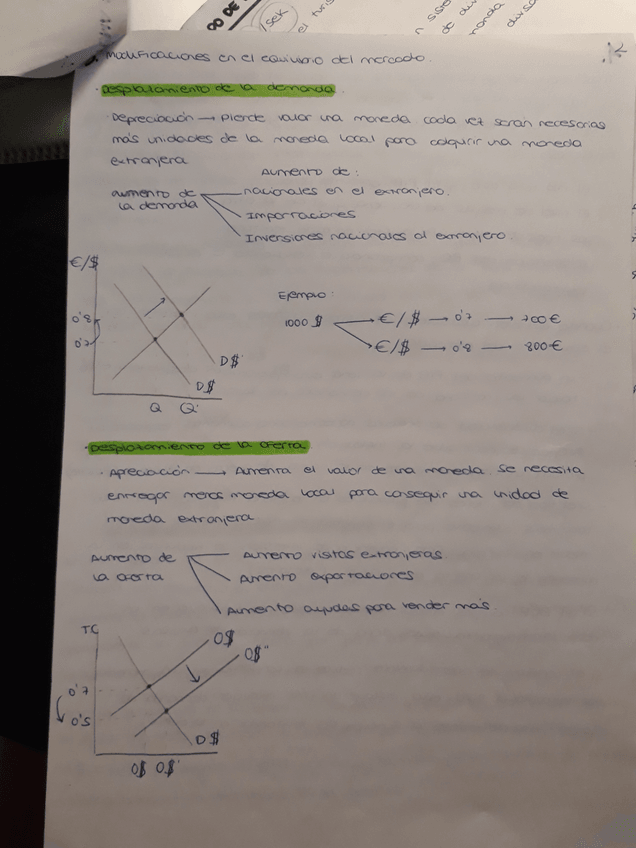 DO DE
1SEK
el turis
n siste
de divi
monda
divisa
2
Modificaciones en el equilibrio del mercado.
· Desplazamiento de la demanda.
· Depreciación → Pierde valor una moneda. cada vez serán necesarias
más unidades de la moneda local para adquirir una moneda
extranjera.
Aumento de:
aumento de
la demanda
nacionales en el extranjero.
Importaciones
Inversiones nacionales al extranjero.
€/$
0'8
0'7
D$'
D$
Q Q'
Ejemplo:
1000 $
€/$ → 0'7 → 700€
€/$ → 0'8 → 800€
· Desplazamiento de la oferta
· Apreciación → Aumenta el valor de una moneda. Se necesita
entregar menos moneda local para conseguir una unidad de
moneda extranjera
Aumento de
la oferta
Aumento visitas extranjeras
Aumento exportaciones
Aumento ayudas para vender más.
TC
O$
O$''
0'7
0'5
D$
O$ O$'